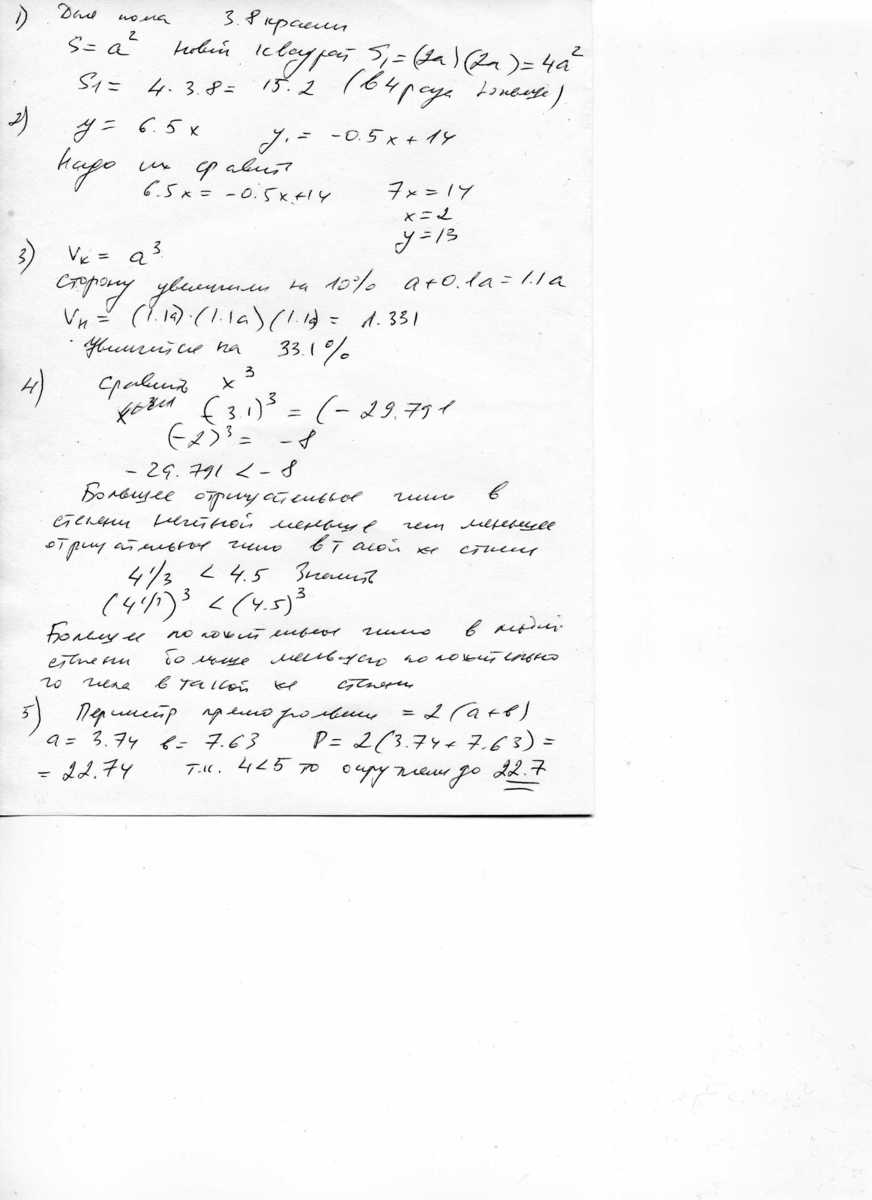 1) Для пола 3.8 краски
S = a² новый квадрат S₁ = (2a)(2a) = 4a²
S1 = 4 · 3.8 = 15.2 (в 4 раза больше)
2) y = 6.5x y₁ = -0.5x + 14
Надо их сравнить
6.5x = -0.5x+14 7x = 14
x = 2
y = 13
3) Vк = a³
Сторону увеличили на 10% a+0.1a = 1.1a
Vн = (1.1a)·(1.1a)(1.1a) = 1.331
Увеличится на 33.1%
4) сравнить x³
(-3.1)³ = (-29.791
(-2)³ = -8
-29.791 < -8
Большее отрицательное число в
степени нечетной меньше чем меньшее
отрицательное число в такой же степени
4 1/3 < 4.5 Значить
(4 1/3)³ < (4.5)³
Большее положительное число в любой
степени больше меньшего положительно
го числа в такой же степени
5) Периметр прямоугольника = 2(a+в)
a = 3.74 в = 7.63 P = 2(3.74 + 7.63) =
= 22.74 т.к. 4<5 то округляем до 22.7